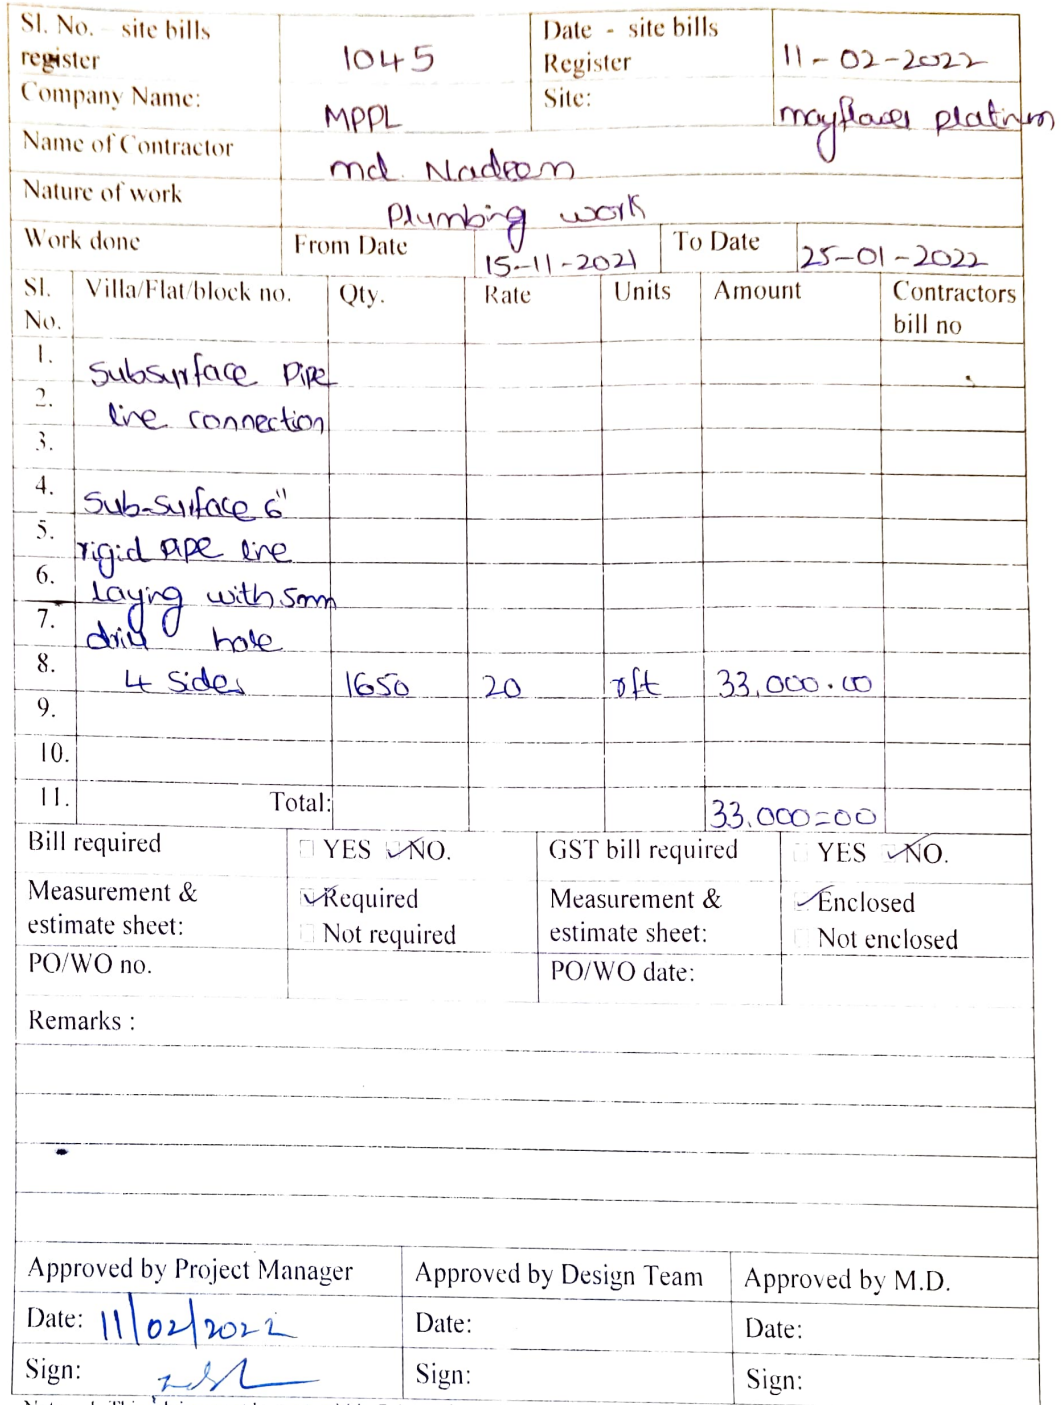 Sl. No. - site bills register 1045 Date - site bills Register 11-02-2022
Company Name: MPPL Site: mayflower platinum
Name of Contractor md. Nadeem
Nature of work Plumbing work
Work done From Date 15-11-2021 To Date 25-01-2022
Sl. No. Villa/Flat/block no. Qty. Rate Units Amount Contractors bill no
1. Subsurface Pipe
2. line connection
3.
4. Sub-Surface 6"
5. rigid pipe line
6. laying with 5mm
7. drill hole
8. 4 Sides 1650 20 rft 33,000.00
9.
10.
11. Total: 33,000=00
Bill required YES NO. GST bill required YES NO.
Measurement & estimate sheet: Required Not required Measurement & estimate sheet: Enclosed Not enclosed
PO/WO no. PO/WO date:
Remarks :
Approved by Project Manager Approved by Design Team Approved by M.D.
Date: 11/02/2022 Date: Date:
Sign: Sign: Sign: